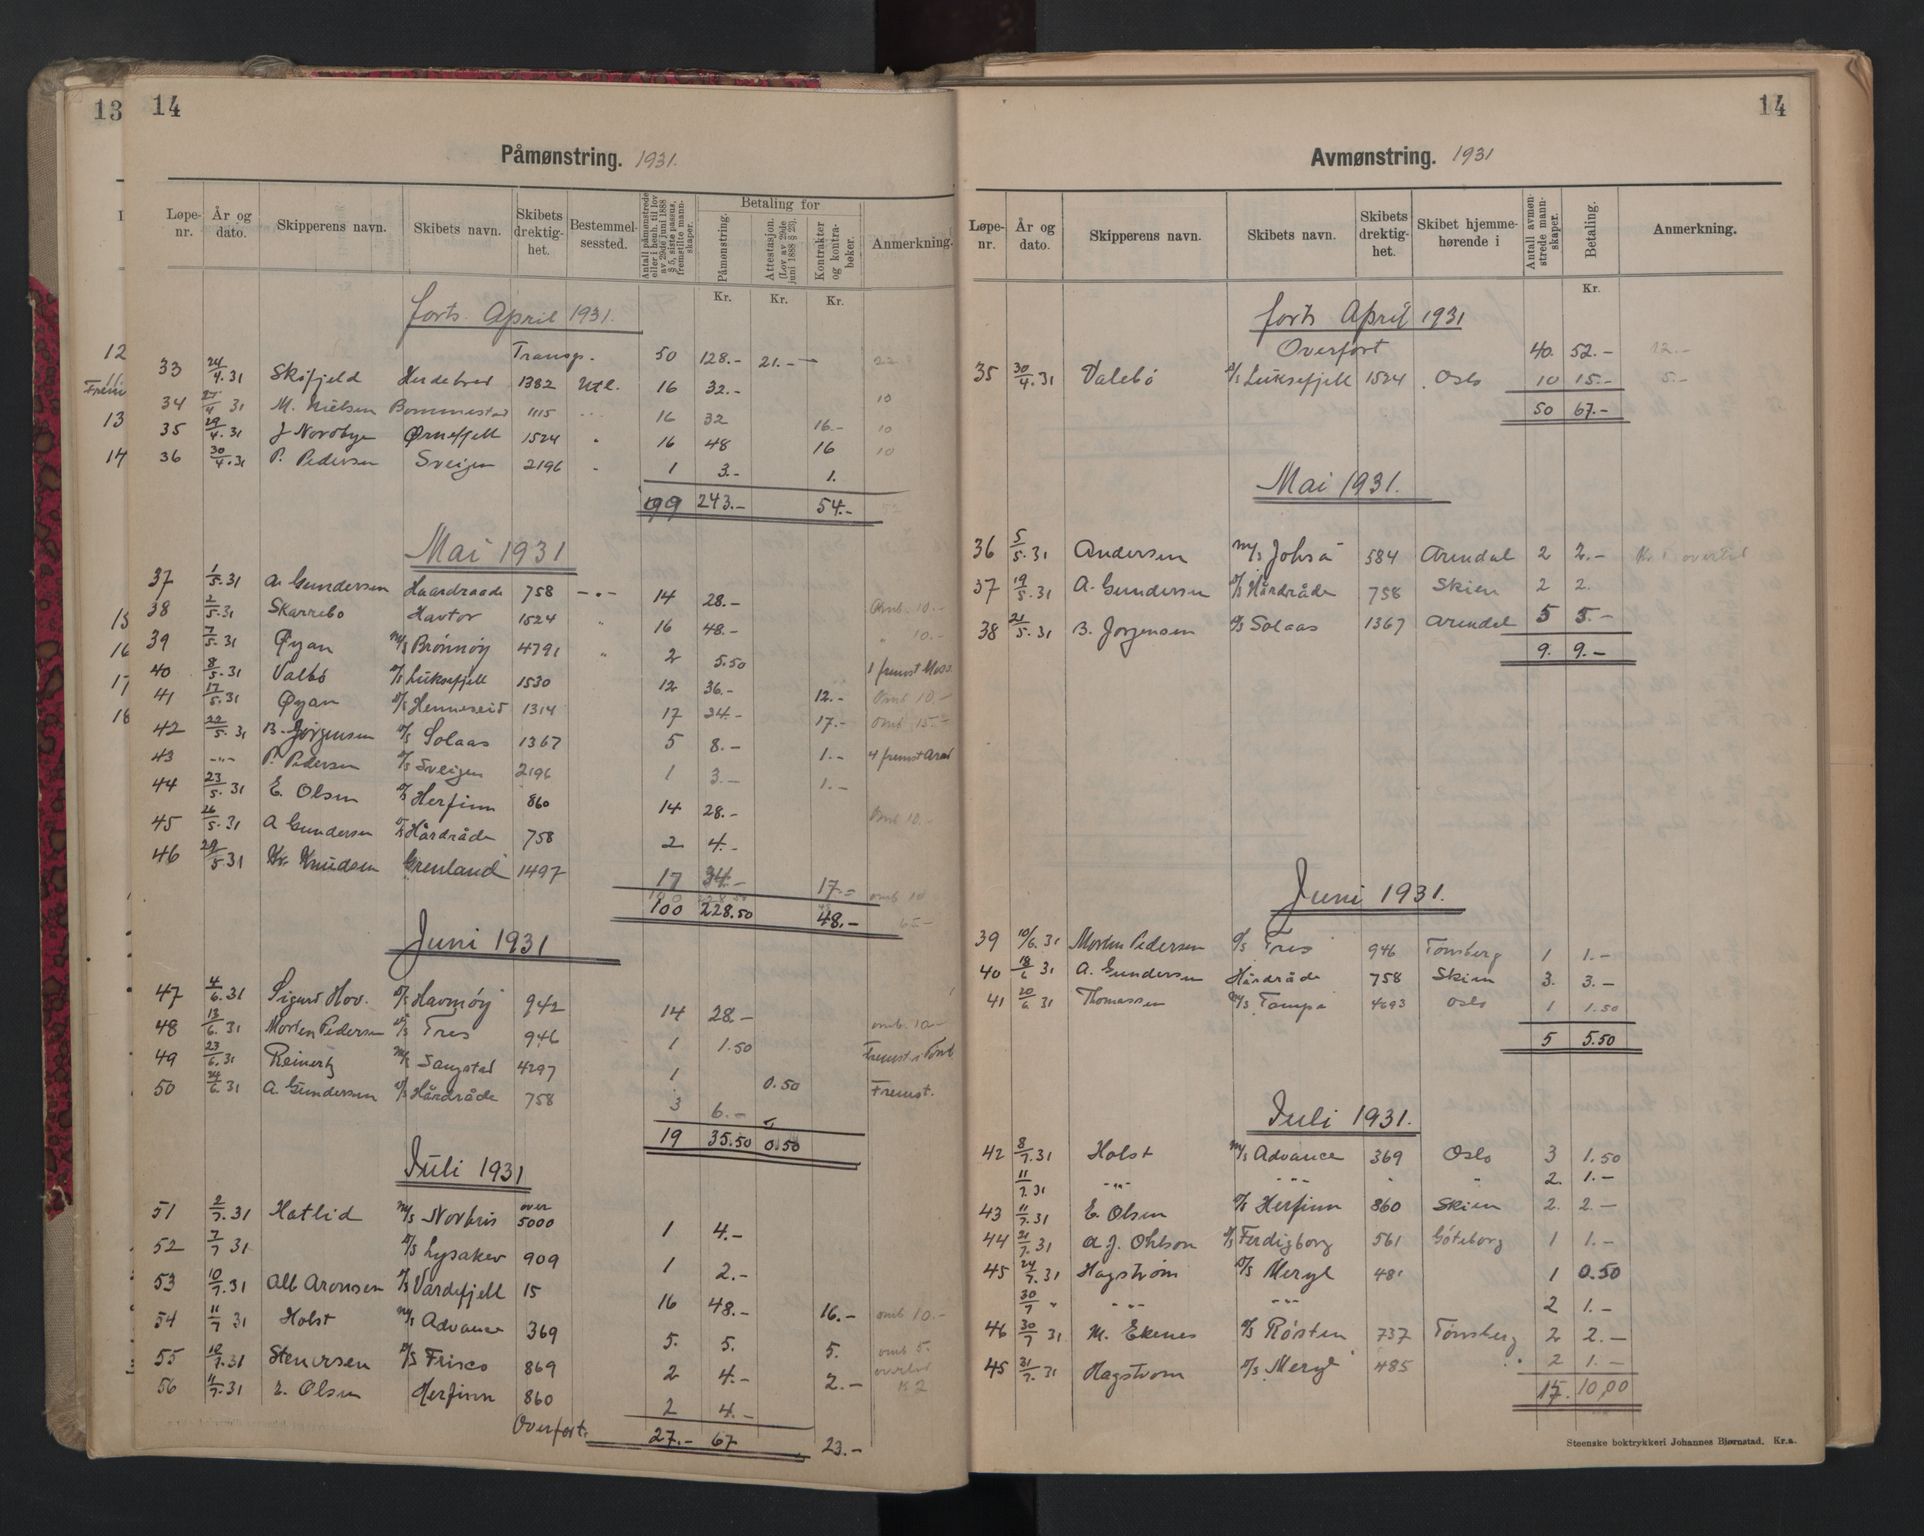 13
14
Påmønstring. 1931.
Løpe-nr. År og dato. Skipperens navn. Skibets navn. Skibets drektig-het. Bestemmel-sessted. Antall påmønstrede eller i henh. til lov av 29de juni 1888 § 5, siste passus, fremstilte mann-skaper. Betaling for Påmønstring. Attestasjon. (Lov av 29de juni 1888 § 23). Kontrakter og kontra-bøker. Anmerkning.
Kr. Kr. Kr.
forts. April 1931.
Transp. 50 128.- 21.-
33 24/4.31 Skifjeld Herdebred 1382 Utl. 16 32.-
34 27/4 31 M. Nielsen Bommestad 1115 16 32 16.- 10
35 29/4.31 J Nordbye Ørnefjell 1524 16 48 16 10
36 30/4.31 P. Pedersen Sveigen 2196 - 1 3.- 1. 10
99 243.- 54.-
Mai 1931
37 1/5.31 A. Gundersen Haardraade 758 -"- 14 28.- Omb. 10.-
38 2/5.31 Skarrebo Havtor 1524 " 16 48.- " 10.-
39 7/5.31 Øyan M/S Brønnøy 4791 " 2 5.50 1 fremst Moss
40 8/5.31 Valbø D/S Luksefjell 1530 12 36.- 12.- Omb 10.-
41 17/5.31 Øyan D/S Henneseid 1314 17 34.- 17.- omb 15.-
42 22/5.31 B. Jørgensen D/S Solaas 1367 5 8.- 1.- 4 fremst Arnd
43 -"- P. Pedersen D/S Sveigen 2196 1 3.- 1.-
44 23/5.31 E. Olsen D/S Herfinn 860 14 28.- Omb 10.-
45 26/5.31 A Gundersen D/S Hårdråde 758 2 4.-
46 29/5 31 Kr. Knudsen Grenland 1497 17 34.- 17.- omb 10
100 228.50 48.- 65.-
Juni 1931
47 4/6.31 Sigurd Hov. D/S Havmøy 942 14 28.- omb. 10.-
48 13/6.31 Morten Pedersen D/S Tres 946 1 1.50 Fremst i Tønsb
49 23/6.31 Reinertz M/S Sangstad 4297 1 0.50 Fremst.
50 24/6.31 A. Gundersen D/S Hårdråde 758 3 6.-
19 35.50 0.50
Juli 1931
51 2/7.31 Hatlid M/S Norbris over 5000 1 4.-
52 7/7 31 D/S Lysaker 909 1 2.-
53 10/7.31 Alb Aronsen D/S Vardefjell 15 16 48.- 16.- omb 10.-
54 11/7 31 Holst M/S Advance 369 5. 5. 5. omb 5.
55 10/7.31 Stenersen D/S Frisco 869 2 4.- 2.- overtid K 2
56 11/7.31 E. Olsen Herfinn 860 2 4.-
Overført. 27.- 67 23.-
14
Avmønstring. 1931
Løpe-nr. År og dato. Skipperens navn. Skibets navn. Skibets drektig-het. Skibet hjemme-hørende i Antall avmøn-strede mann-skaper. Betaling. Anmerkning.
Kr.
forts April 1931
Overført 40. 52.- 12.-
35 30/4.31 Valebø D/S Luksefjell 1524 Oslo 10 15.- 5.-
50 67.-
Mai 1931.
36 5/5.31 Andersen M/S Johså 584 Arendal 2 2.- Kr. 5 overtid
37 19/5.31 A. Gundersen D/S Hårdråde 758 Skien 2 2.
38 21/5.31 B. Jørgensen D/S Solaas 1367 Arendal 5 5.-
9. 9.-
Juni 1931.
39 10/6.31 Morten Pedersen D/S Tres 946 Tønsberg 1 1.-
40 18/6 31 A. Gundersen Hårdråde 758 Skien 3. 3.-
41 20/6.31 Thomassen M/S Tampa 4693 Oslo 1 1.50
5 5.50
Juli 1931.
42 8/7.31 Holst M/S Advance 369 Oslo 3 1.50
11/7.31 -"- -"- " " 2. 1.-
43 11/7.31 E. Olsen D/S Herfinn 860 Skien 2. 2.-
44 21/7.31 A J. Ohlson D/S Ferdigborg 561 Göteborg 1 1.-
45 24/7.31 Hagstrøm D/S Meryl 481 1 0.50
30/7 " -"- -"- 2 1.-
46 30/7 31 M. Ekenes D/S Røsten 737 Tønsberg 2 2.-
45 31/7.31 Hagstrøm D/S Meryl 485 2 1.-
15. 10,00
Steenske boktrykkeri Johannes Bjørnstad. Kr.a.